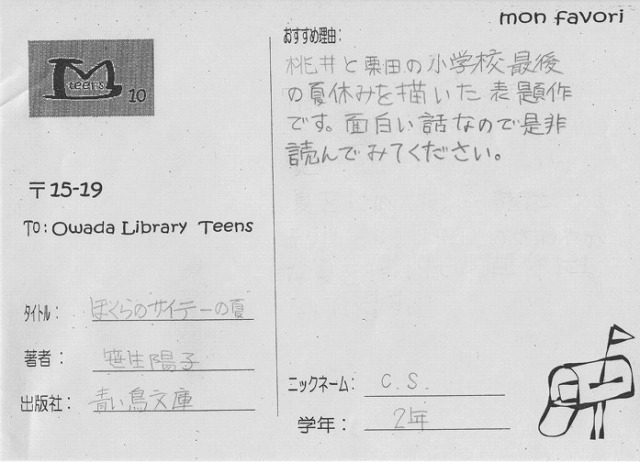 mon favori
teen's 10
〒15-19
To: Owada Library Teens
タイトル: ぼくらのサイテーの夏
著者: 笹生陽子
出版社: 青い鳥文庫
おすすめ理由:
桃井と栗田の小学校最後
の夏休みを描いた表題作
です。面白い話なので是非
読んでみてください。
ニックネーム: C.S.
学年: 2年